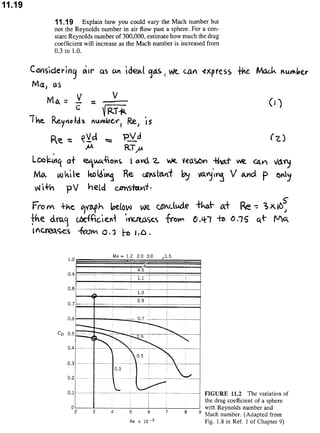 11.19
11.19 Explain how you could vary the Mach number but
not the Reynolds number in air flow past a sphere. For a con-
stant Reynolds number of 300,000, estimate how much the drag
coefficient will increase as the Mach number is increased from
0.3 to 1.0.
Considering air as an ideal gas, we can express the Mach number
Ma, as
Ma = V/c = V/√RTk (1)
The Reynolds number, Re, is
Re = ρVd/μ = pVd/RTμ (2)
Looking at equations 1 and 2 we reason that we can vary
Ma while holding Re constant by varying V and p only
with pV held constant.
From the graph below we conclude that at Re = 3×10⁵,
the drag coefficient increases from 0.47 to 0.75 as Ma
increases from 0.3 to 1.0.
Ma = 1.2 2.0 3.0 3.5
1.0
4.5
0.9
1.1
0.8
1.0
0.7
0.9
0.6
0.7
CD 0.5
0.4
0.5
0.3
0.3
0.2
0.1
0
2 3 4 5 6 7 8 9
Re × 10⁻⁵
FIGURE 11.2 The variation of
the drag coefficient of a sphere
with Reynolds number and
Mach number. (Adapted from
Fig. 1.8 in Ref. 1 of Chapter 9)